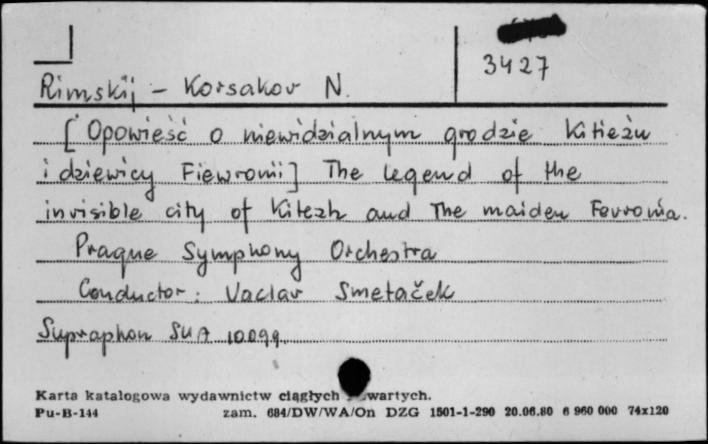 3427
Rimskij - Korsakov N.
[Opowieść o niewidzialnym grodzie Kitieżu
i dziewicy Fiewronii] The legend of the
invisible city of Kitezh and The maiden Fevronia.
Prague Symphony Orchestra
Conductor: Vaclav Smetaček
Supraphon SUA 10099.
Karta katalogowa wydawnictw ciągłych wartych.
Pu-B-144 zam. 684/DW/WA/On DZG 1501-1-290 20.06.80 6 960 000 74x120